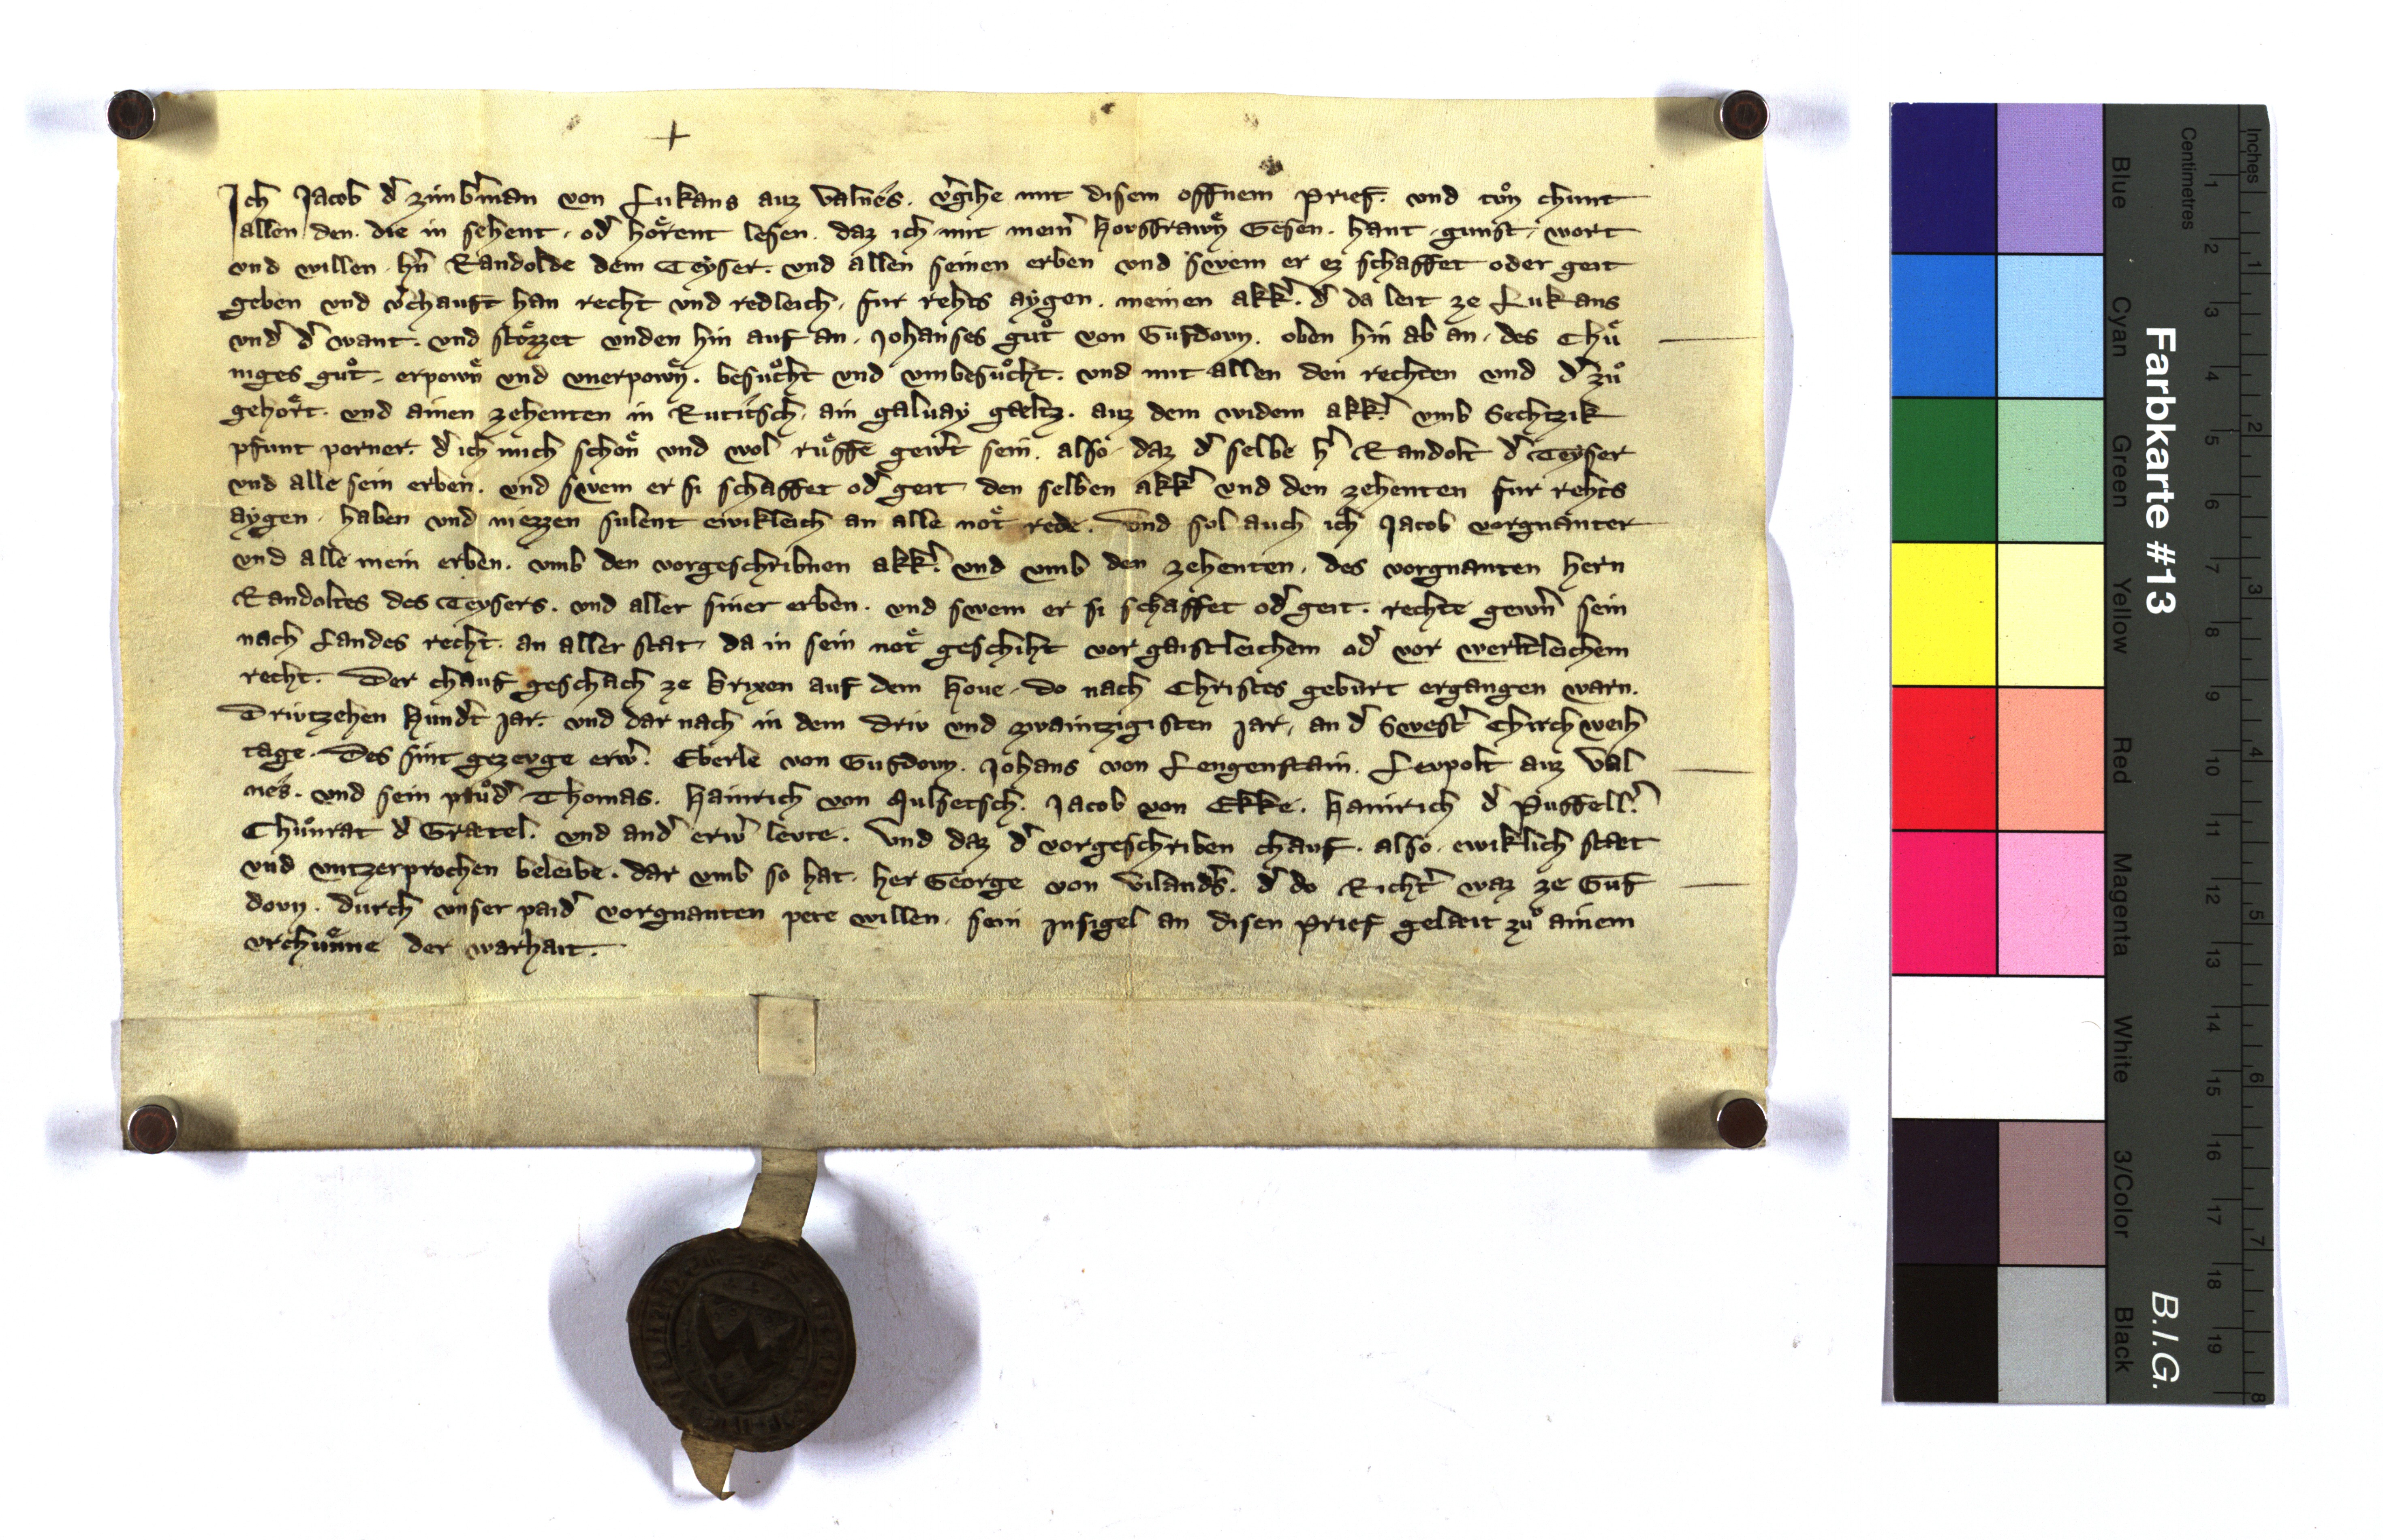 Ich Jacob d̾ zimb̾man von Lukans auz Valnes. v̾gihe mit disem offnem Prief. und tůn chunt
allen den. die in sehent. od̾ hoͤrent lesen. daz ich mit mein̾ housfrawn̄ Gesen. hant. gunst. wort
und willen. hn̄ Randolde dem Teyser. und allen seinen erben und swem er ez schaffet oder geit
geben und v̾chauft han recht und redleich. fur rehts aygen. meinen akk̾. d̾ da leit ze Lukans
und̾ d̾ want. und stoͤzzet unden hin auf an. Johanses gůt von Gufdovn. oben hin ab an. des Chuͤ
niges gůt. erpown̄ und unerpown̄. besůcht und umbesůcht. und mit allen den rechten und d̾ zů
gehoͤrt. und ainen zehenten in Rutitsch. ain galuay gaeltz. auz dem widem akk̾. umb Sechtzik
pfunt perner. d̾ ich mich schoͤn und wol ruͤffe gew̾t sein. also. daz d̾ selbe h̾ Randolt d̾ Teyser
und alle sein erben. und swem er si schaffet od̾ geit den selben akk̾ und den zehenten fur rehts
aygen. haben und niezzen sulent ewikleich an alle noͤt rede. Und sol auch ich Jacob vorgnanter
und alle mein erben. umb den vorgeschribnen akk̾. und umb den zehenten. des vorgnanten hern
Randoltes des Teysers. und aller siner erben. und swem er si schaffet od̾ geit. rechte gew̾n sein
nach Landes recht. an aller stat. da in sein noͤt geschiht vor gaistleichem od̾ vor werltleichem
recht. Der chauf geschach ze Brixen auf dem Houe. do nach Christes geburt ergangen warn.
Drivtzehen Hund̾t Jar. und dar nach in dem driv und zwaintzigisten Jar. an d̾ Swest̾ Chirchweih
tage. Des sint gezevge erw̾. Eberle von Gufdovn. Johans von Lengenstain. Levpolt auz Val
nes. und sein průd̾ Thomas. Hainrich von Mulsetsch. Jacob von Ekke. Hainrich d̾ Puffell̾.
Chůnrat d̾ Graetel. und and̾ erw̾ levte. Und daz d̾ vorgeschriben chauf. also. ewiklich staet
und untzerprochen beleibe. dar umb so hat. her George von Viland̾s. d̾ do Richt̾ waz ze Guf
dovn. durch unser paid̾ vorgnanten pete willen. sein Insigel an disen Prief gelaeit zů ainem
urchuͤnne der warhait.
Farbkarte #13
B.I.G.
Blue
Cyan
Green
Yellow
Red
Magenta
White
3/Color
Black
Centimetres
1 2 3 4 5 6 7 8 9 10 11 12 13 14 15 16 17 18 19
Inches
1 2 3 4 5 6 7 8